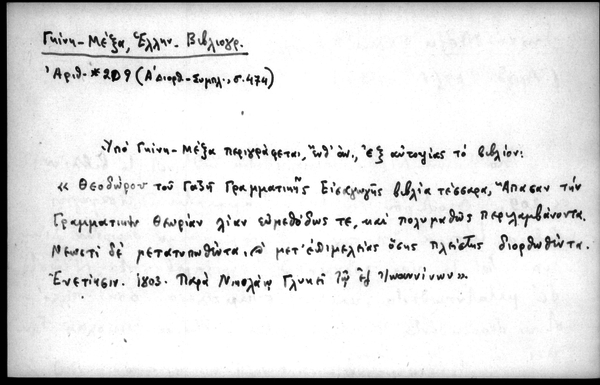 Γκίνη-Μέξα, Ἑλλην. Βιβλιογρ.
Ἀριθ. *209 (Α' Διορθ.-Συμπλ., σ. 474)
Ὑπό Γκίνη-Μέξα περιγράφεται, ἔνθ' ἀν., ἐξ αὐτοψίας τό βιβλίον:
« Θεοδώρου τοῦ Γαζῆ Γραμματικῆς Εἰσαγωγῆς βιβλία τέσσαρα, Ἅπασαν τήν
Γραμματικήν θεωρίαν λίαν εὐμεθόδως τε, καί πολυμαθῶς περιλαμβάνοντα.
Νεωστί δέ μετατυπωθέντα, μετ' ἐπιμελείας ὅσης πλείστης διορθωθέντα.
Ἐνετίῃσιν. 1803. Παρά Νικολάῳ Γλυκεῖ τῷ ἐξ Ἰωαννίνων».